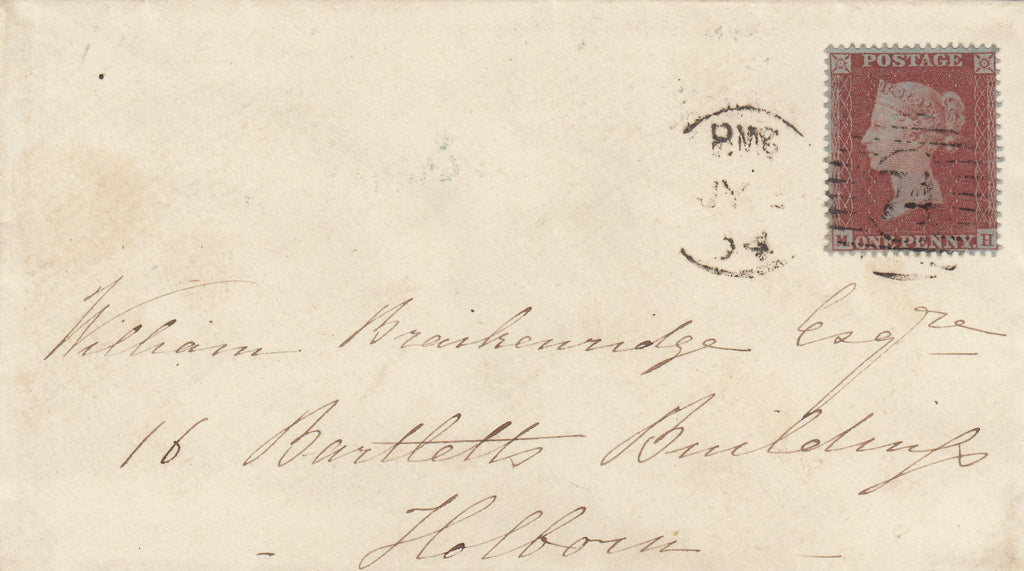 POSTAGE
JY
54
M ONE PENNY H
William Braikenridge Esqre
16 Bartletts Buildings
Holborn